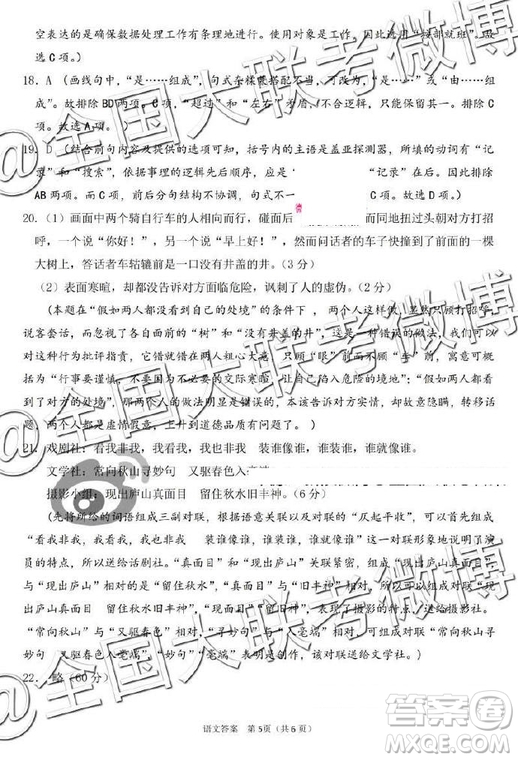 空表达的是确保数据处理工作有条理地进行。使用对象是工作，用"按部就班"。故
选C项。）
18. A（画线句中，"是……组成"，句式杂糅搭配不当，可改为，"是……"或"由……
组成"。故排除BD两项。C项，"超过"和"左右"不合逻辑，只能保留其一。排除
C项。故选A项。）
19. D（结合前面内容及提供的选项可知，括号内的主语是盖亚探测器，所填的动词有"记
录"和"搜索"，依据事理的逻辑先后顺序，应是
"记录"在后。因此排除
AB两项。C项，前后分句结构不协调，句式不一
排除C项。故选D项。）
20.（1）画面中两个骑自行车的人相向而行，碰面后
而同地扭过头朝对方打招
呼，一个说"你好！"，另一个说"早上好！"，然而问话者的车子快撞到了前面的一棵
大树上，答话者车轱辘前是一口没有井盖的井。（3分）
（2）表面寒暄，却都没告诉对方面临危险，讽刺了人的虚伪。（2分）
（本题在"假如两人都没看到自己的处境"的条件下，两个人的做法就是
说客套话而忽略了各自前面的"树"和"没有井盖的井"，是一种错误的做法。以
这种行为批评指责，它借就错在两人粗心大意，只顾"眼"而不顾"前"，寓意可概括
为"行事要谨慎，不要因为不谨慎而让自己陷入危险的境地"；"假如两人都看到了
对方的处境"，那两个人的做法则显错误，因为那是故意隐瞒，故意让对方陷入困
境，两个人都是虚情假意，上升到道德品质有问题了。）
21. 戏剧社：看我非我，我看我，我也非我 装谁像谁，谁装谁，谁就像谁。
文学社：常向秋山寻妙句 又驱春色入
摄影小组：现出庐山真面目 留住秋水旧丰神。（6分）
（先将所给的词语组成三副对联，根据语意关联以及对联的"仄起平收"，可以
组成"看我非我，我看我，我也非我 装谁像谁，谁装谁，谁就像谁"说明了演
员的特点，所以送给话剧社。"真面目"与"现出庐山"关联紧密，组成上联，
与"现出庐山"相对的是"留住秋水"，"真面目"与"旧丰神"相对，组成对联"现
出庐山真面目 留住秋水旧丰神"，表现了摄影的特点，送给摄影小组；
"常向秋山"与"又驱春色"相对，"寻妙句"与"入毫端"相对，组成"常向秋山寻妙
句 又驱春色入毫端"，"妙句""毫端"表明是创作，所以该对联应送给文学社。）
22. 略（60分）
语文答案 第5页（共6页）
@全国大联考微博
@全国大联考微博
@全国大联考微博
答案圈